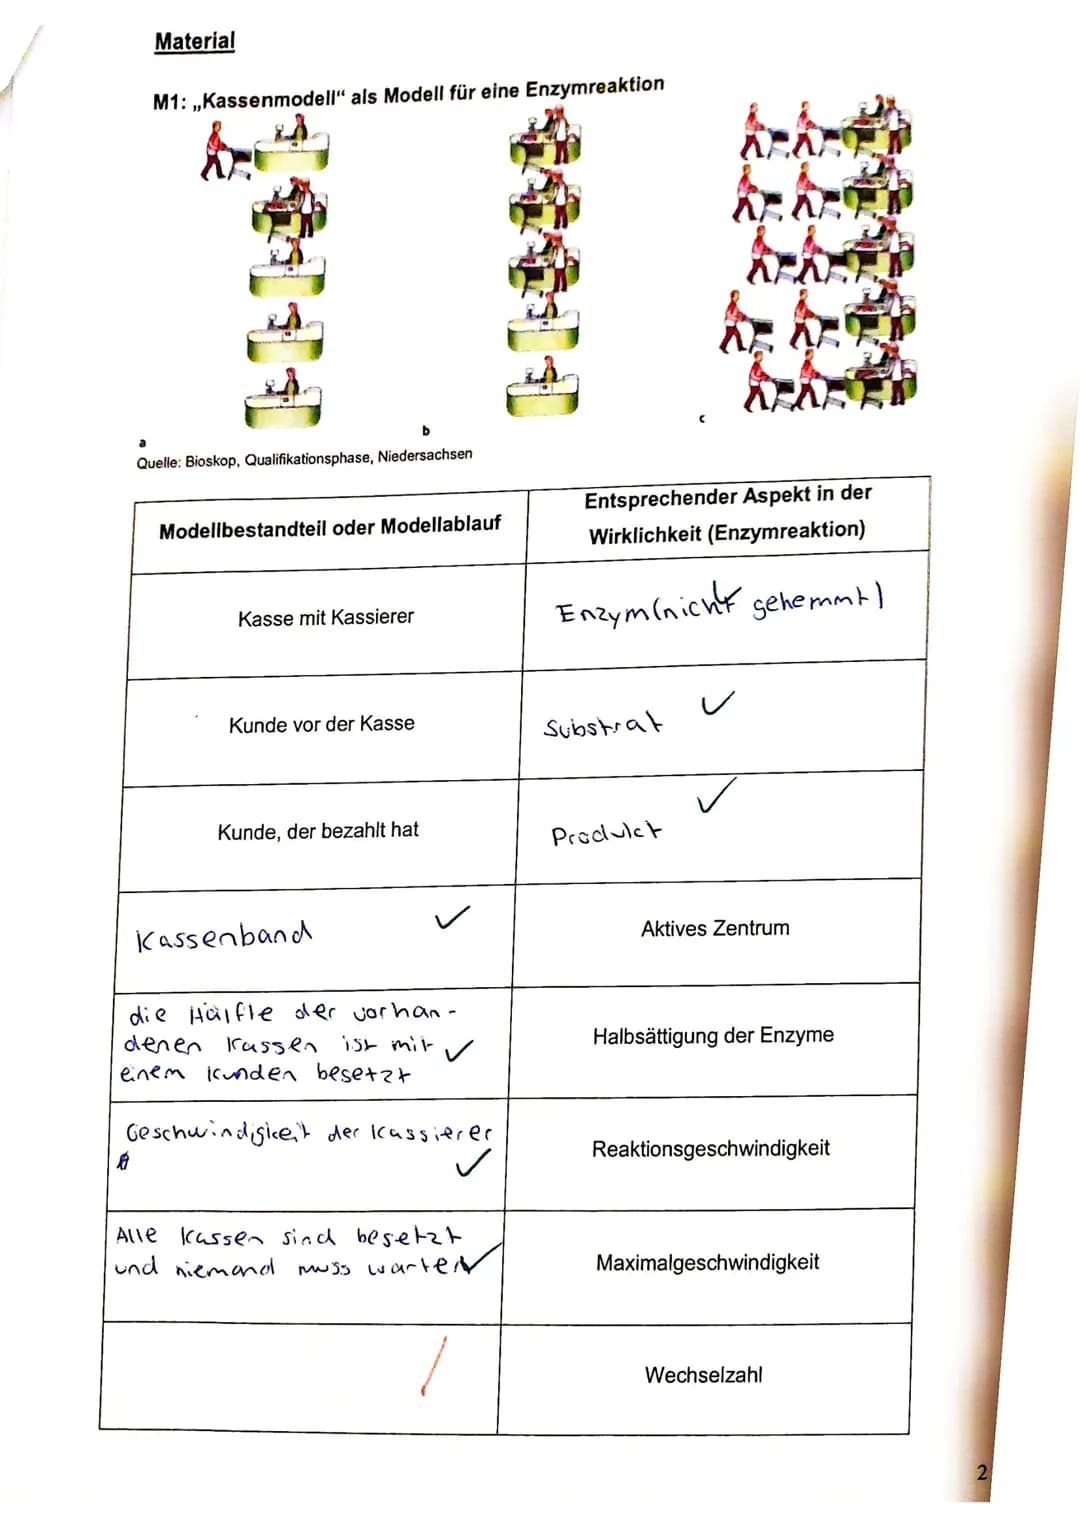 Material
M1: „Kassenmodell“ als Modell für eine Enzymreaktion
a
b
c
Quelle: Bioskop, Qualifikationsphase, Niedersachsen
Modellbestandteil oder Modellablauf
Entsprechender Aspekt in der
Wirklichkeit (Enzymreaktion)
Kasse mit Kassierer
Enzym(nicht gehemmt)
Kunde vor der Kasse
Substrat
Kunde, der bezahlt hat
Produkt
Kassenband
Aktives Zentrum
die Hälfte der vorhan-
denen Kassen ist mit
einem Kunden besetzt
Halbsättigung der Enzyme
Geschwindigkeit der Kassierer
Reaktionsgeschwindigkeit
Alle Kassen sind besetzt
und niemand muss warten
Maximalgeschwindigkeit
Wechselzahl
2